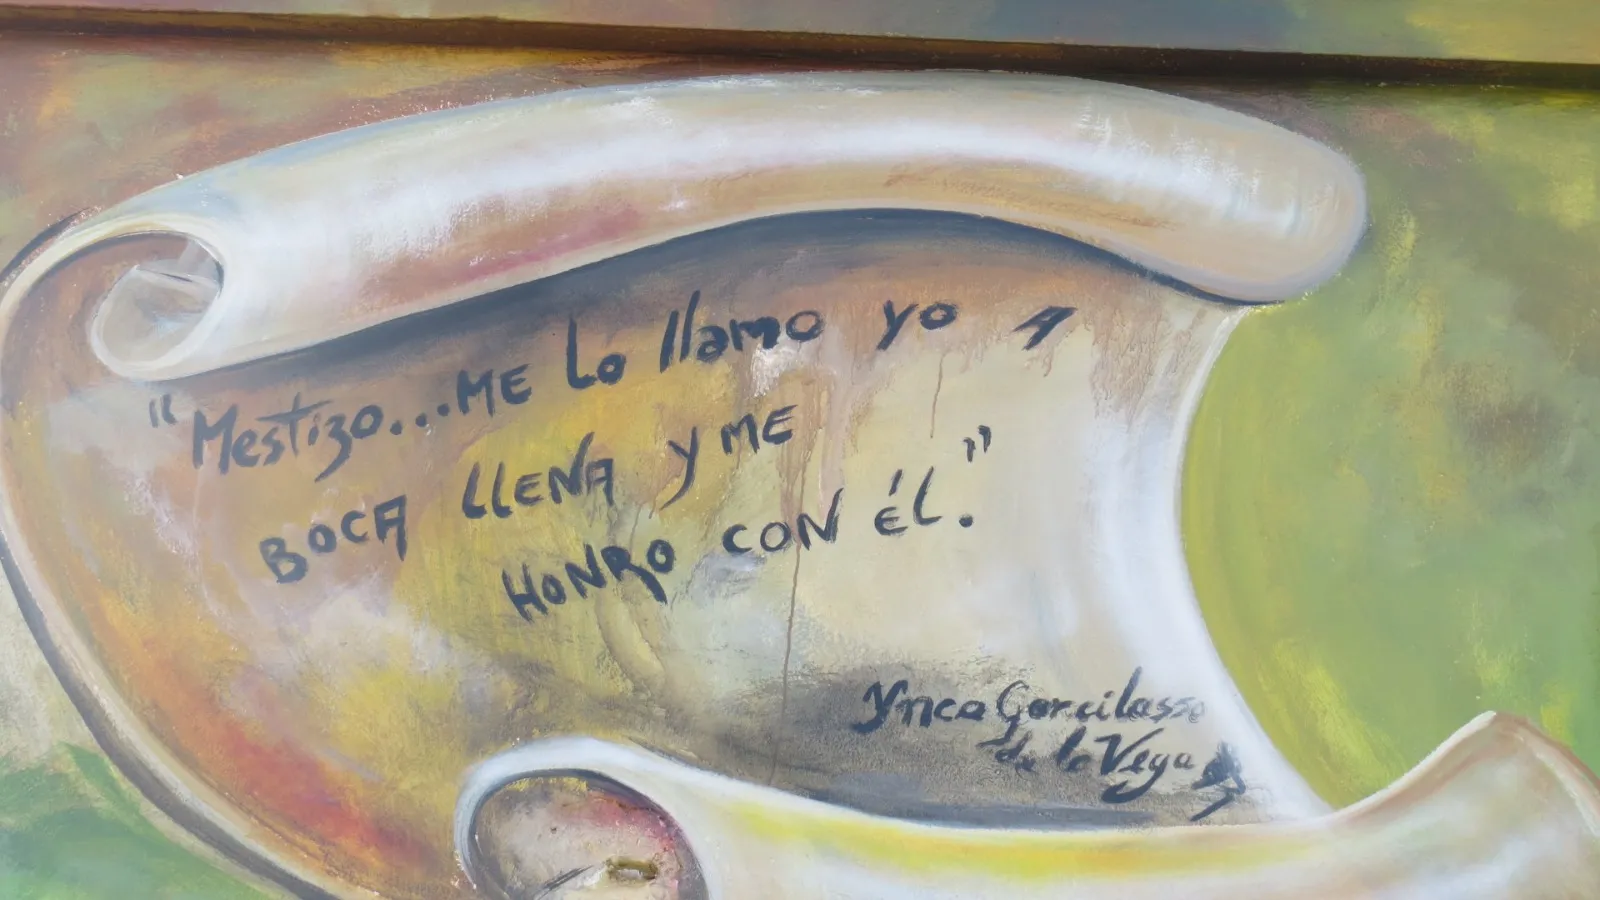 "Mestizo...ME Lo llamo yo A
BOCA LLENA Y ME
HONRO CON ÉL."
Ynca Garcilasso
de la Vega